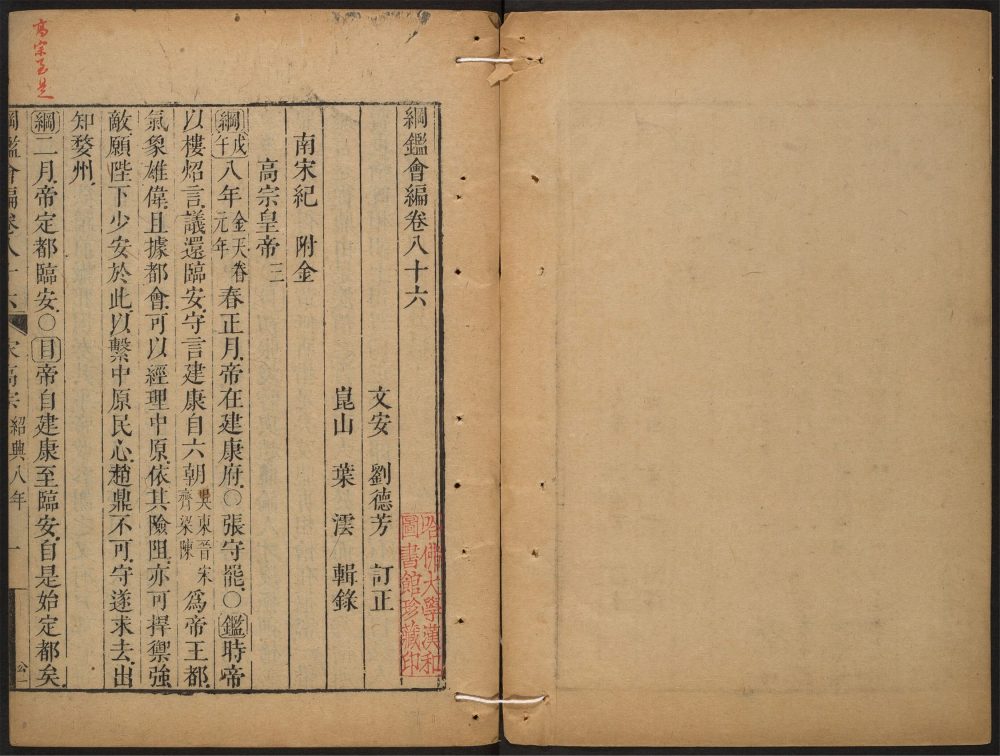 綱鑑會編卷八十六
文安 劉德芳 訂正
崑山 葉澐 輯錄
南宋紀 附金
高宗皇帝 三
綱 戊午 八年 金天眷元年 春正月帝在建康府○張守罷○鑑時帝
以樓炤言議還臨安守言建康自六朝 吳東晉宋齊梁陳 爲帝王都
氣象雄偉且據都會可以經理中原依其險阻亦可捍禦強
敵願陛下少安於此以繫中原民心趙鼎不可守遂求去出
知婺州
綱二月帝定都臨安○目帝自建康至臨安自是始定都矣
綱鑑會編卷八十六 宋高宗 紹興八年 一
哈佛大學漢和
圖書館珍藏印